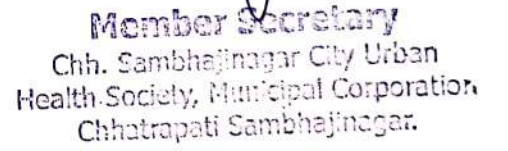 Member Secretary
Chh. Sambhajinagar City Urban
Health Society, Municipal Corporation
Chhatrapati Sambhajinagar.